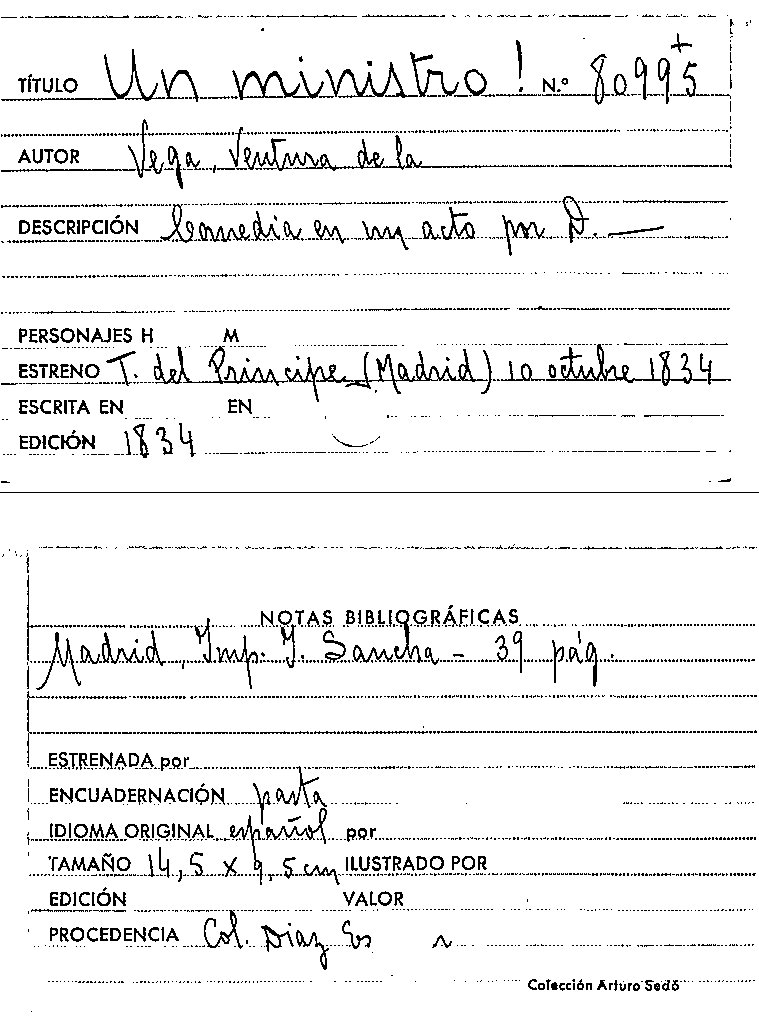 TÍTULO Un ministro! N.º 80995 +
AUTOR Vega, Ventura de la
DESCRIPCIÓN Comedia en un acto por D. —
PERSONAJES H M
ESTRENO T. del Principe (Madrid) 10 octubre 1834
ESCRITA EN EN
EDICIÓN 1834
NOTAS BIBLIOGRÁFICAS
Madrid, Imp. I. Sancha - 39 pág.
ESTRENADA por
ENCUADERNACIÓN pasta
IDIOMA ORIGINAL español por
TAMAÑO 14,5 x 9,5 cm ILUSTRADO POR
EDICIÓN VALOR
PROCEDENCIA Col. Diaz
Colección Arturo Sedó